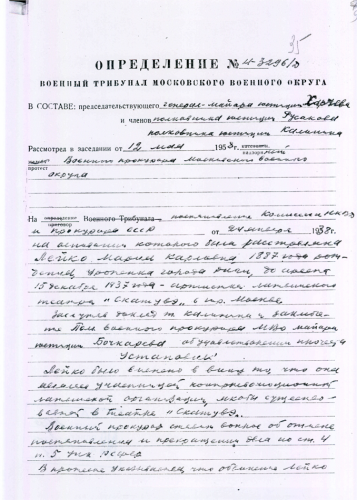 35
ОПРЕДЕЛЕНИЕ № Н-3296/3
ВОЕННЫЙ ТРИБУНАЛ МОСКОВСКОГО ВОЕННОГО ОКРУГА
В СОСТАВЕ: председательствующего генерал-майора юстиции Харчева
и членов полковника юстиции Рыбакова
полковника юстиции Калинина
Рассмотрел в заседании от 12 мая 1958 г. надзорный
протест Военного прокурора Московского военного
округа
На приговор Военного Трибунала постановление Комиссии НКВД
и прокурора СССР от 24 января 1938 г.
на основании которого была расстреляна
Лейко Мария Карловна 1887 года
уроженка города Риги, до ареста
15 декабря 1937 года артистка латышского
театра "Скатувэ" в гор. Москве
Заслушав доклад т. Калинина и
Пом военного прокурора МВО майора
юстиции Бочкарева об удовлетворении протеста
Установил:
Лейко было вменено в вину то, что она
являлась участницей контрреволюционной
латышской организации
в театре "Скатувэ".
Военный прокурор ставит вопрос об отмене
постановления и прекращении дела по ст. 4
п. 5 УПК РСФСР
В протесте указывается, что обвинение Лейко